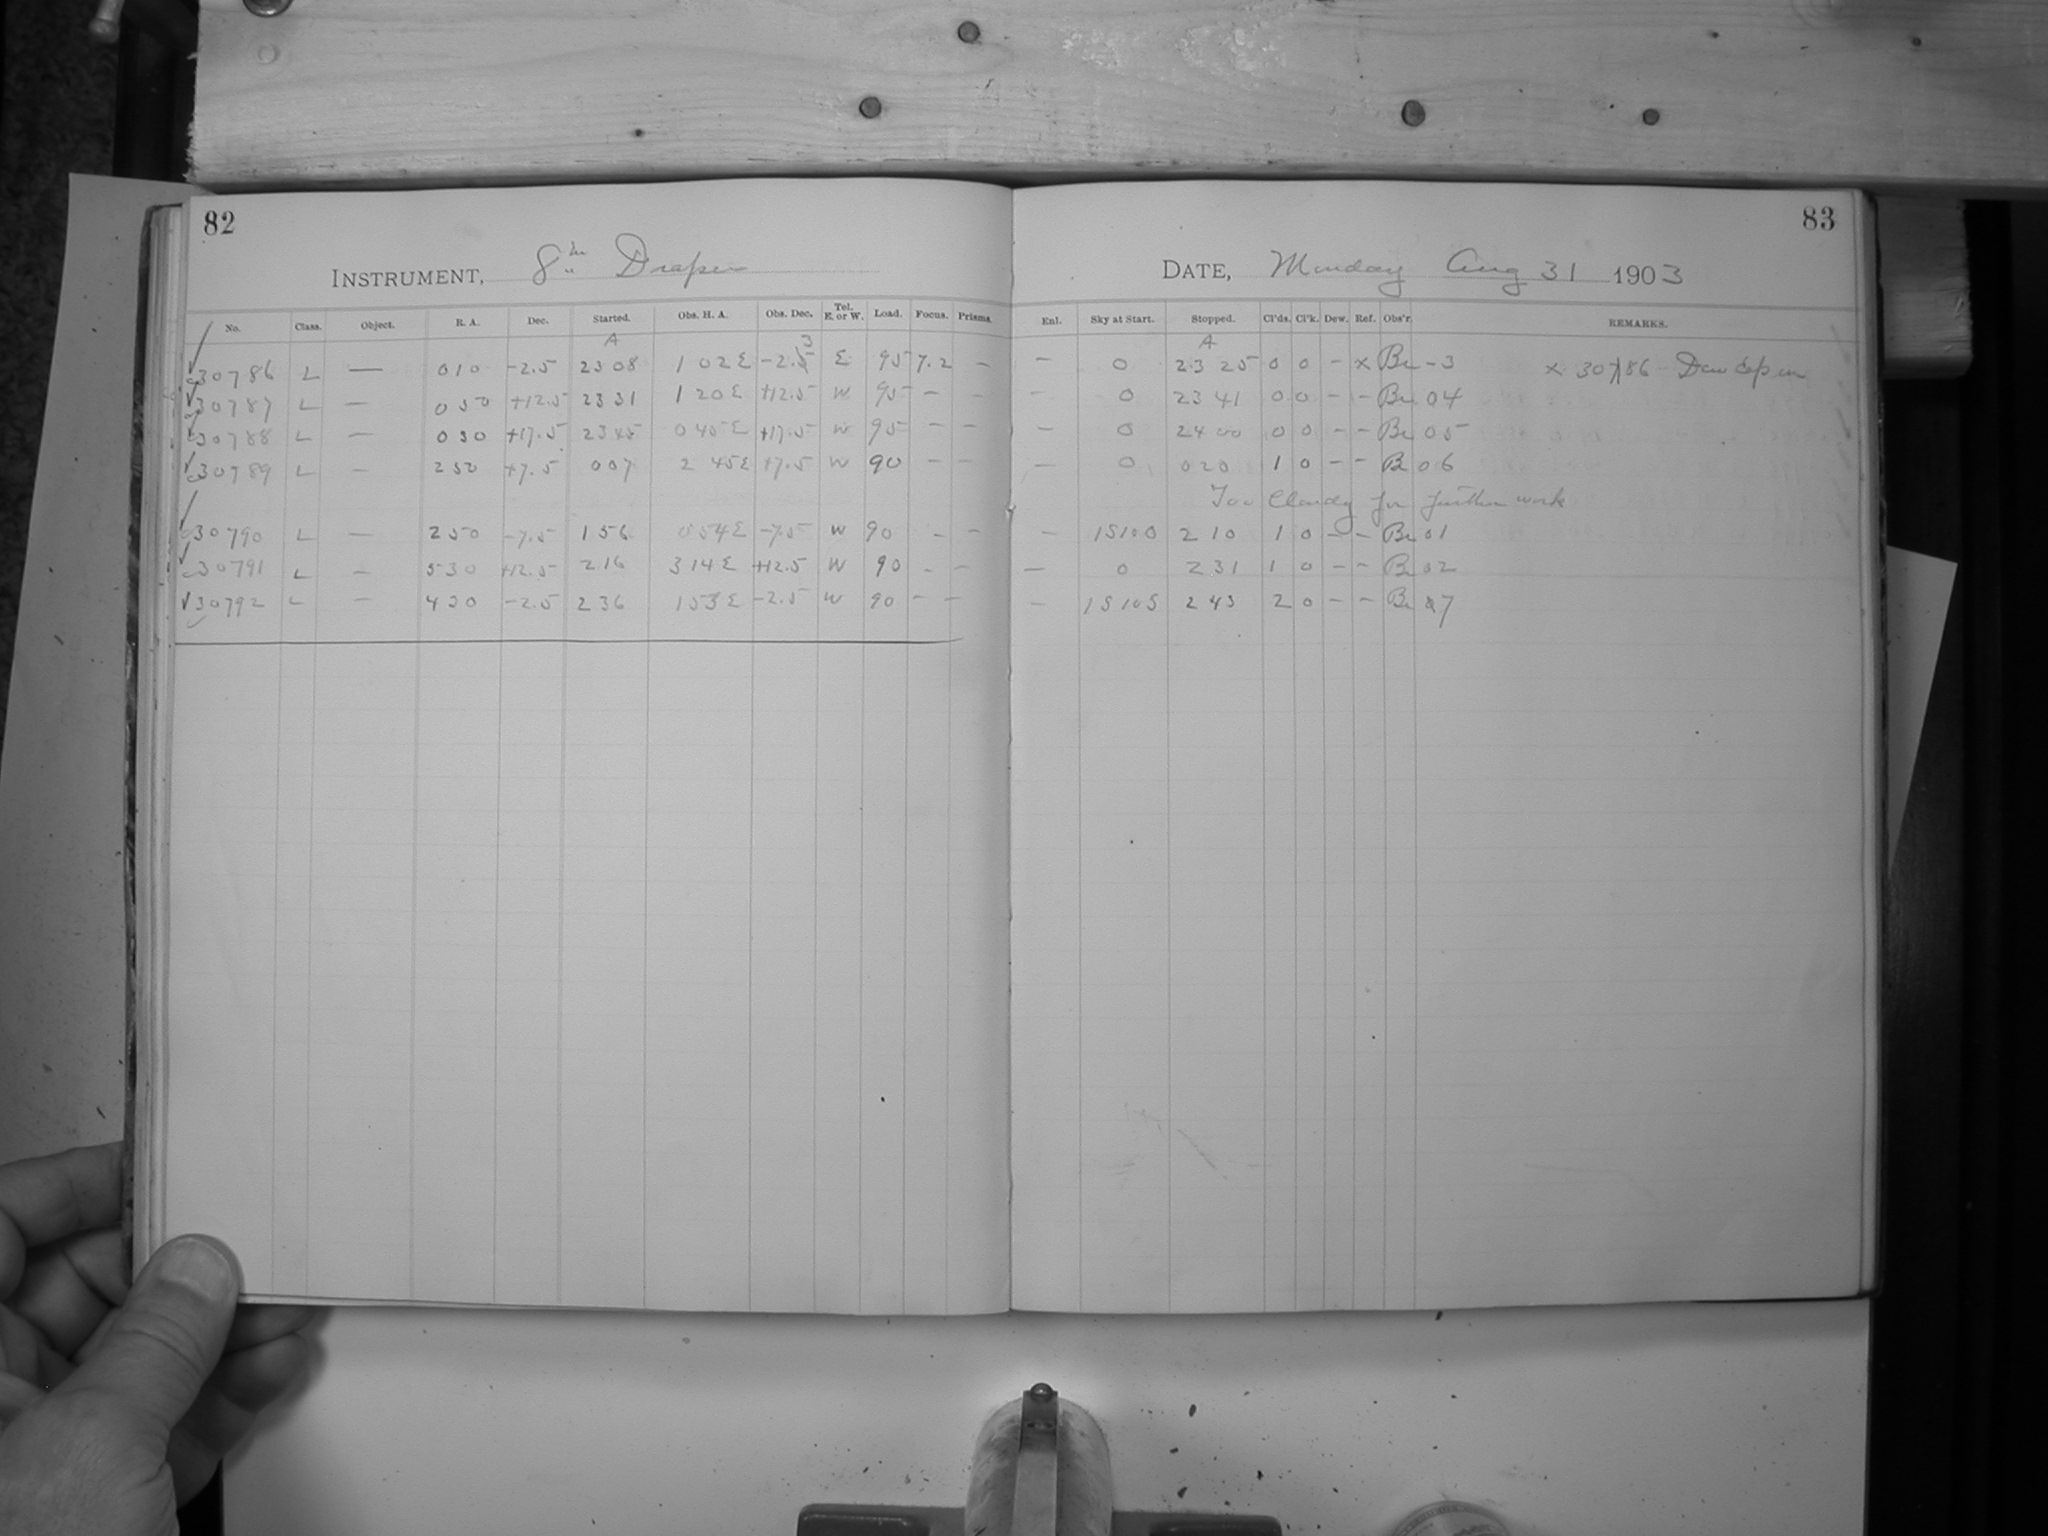 82
INSTRUMENT, 8 in Draper
No. Class. Object. R. A. Dec. Started. Obs. H. A. Obs. Dec. Tel. E. or W. Load. Focus. Prisms.
A 3
30786 L — 0 10 -2.5 23 08 1 02 E -2.5 E 95 7.2 —
30787 L — 0 50 +12.5 23 31 1 20 E +12.5 W 95 — —
30788 L — 0 30 +17.5 23 45 0 45 E +17.5 W 95 — —
30789 L — 2 50 +7.5 0 07 2 45 E +7.5 W 90 — —
30790 L — 2 50 -7.5 1 56 0 54 E -7.5 W 90 — —
30791 L — 5 30 +12.5 2 16 3 14 E +12.5 W 90 — —
30792 L — 4 30 -2.5 2 36 1 53 E -2.5 W 90 — —
83
DATE, Monday Aug 31 1903
Enl. Sky at Start. Stopped. Cl'ds. Cl'k. Dew. Ref. Obs'r. REMARKS.
A
— 0 23 25 0 0 — x Br -3 x 30786 - Dew Cap on
— 0 23 41 0 0 — — Br 04
— 0 24 00 0 0 — — Br 05
— 0 0 20 1 0 — — Br 06
Too Cloudy for further work
— 1S100 2 10 1 0 — — Br 01
— 0 2 31 1 0 — — Br 02
— 1S10S 2 43 2 0 — — Br 07